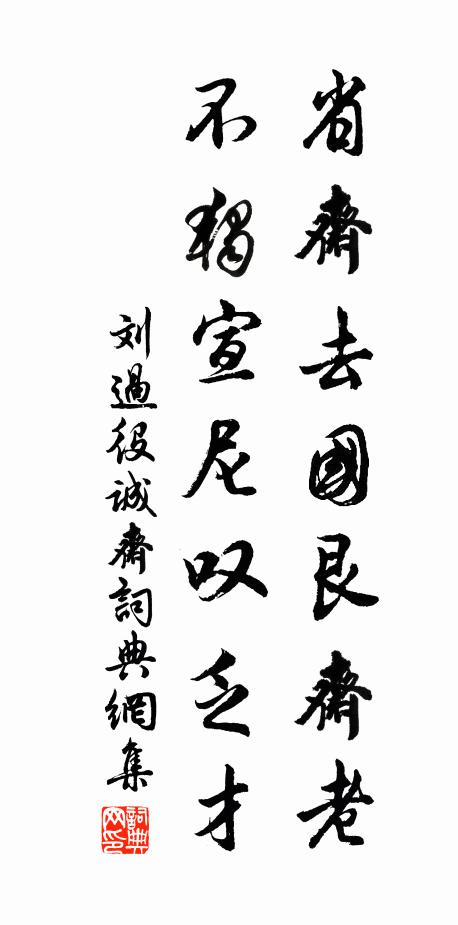 省齋去國艮齋老
不獨宣尼叹乏才
刘過役誠齋詞典網集
詞典网印